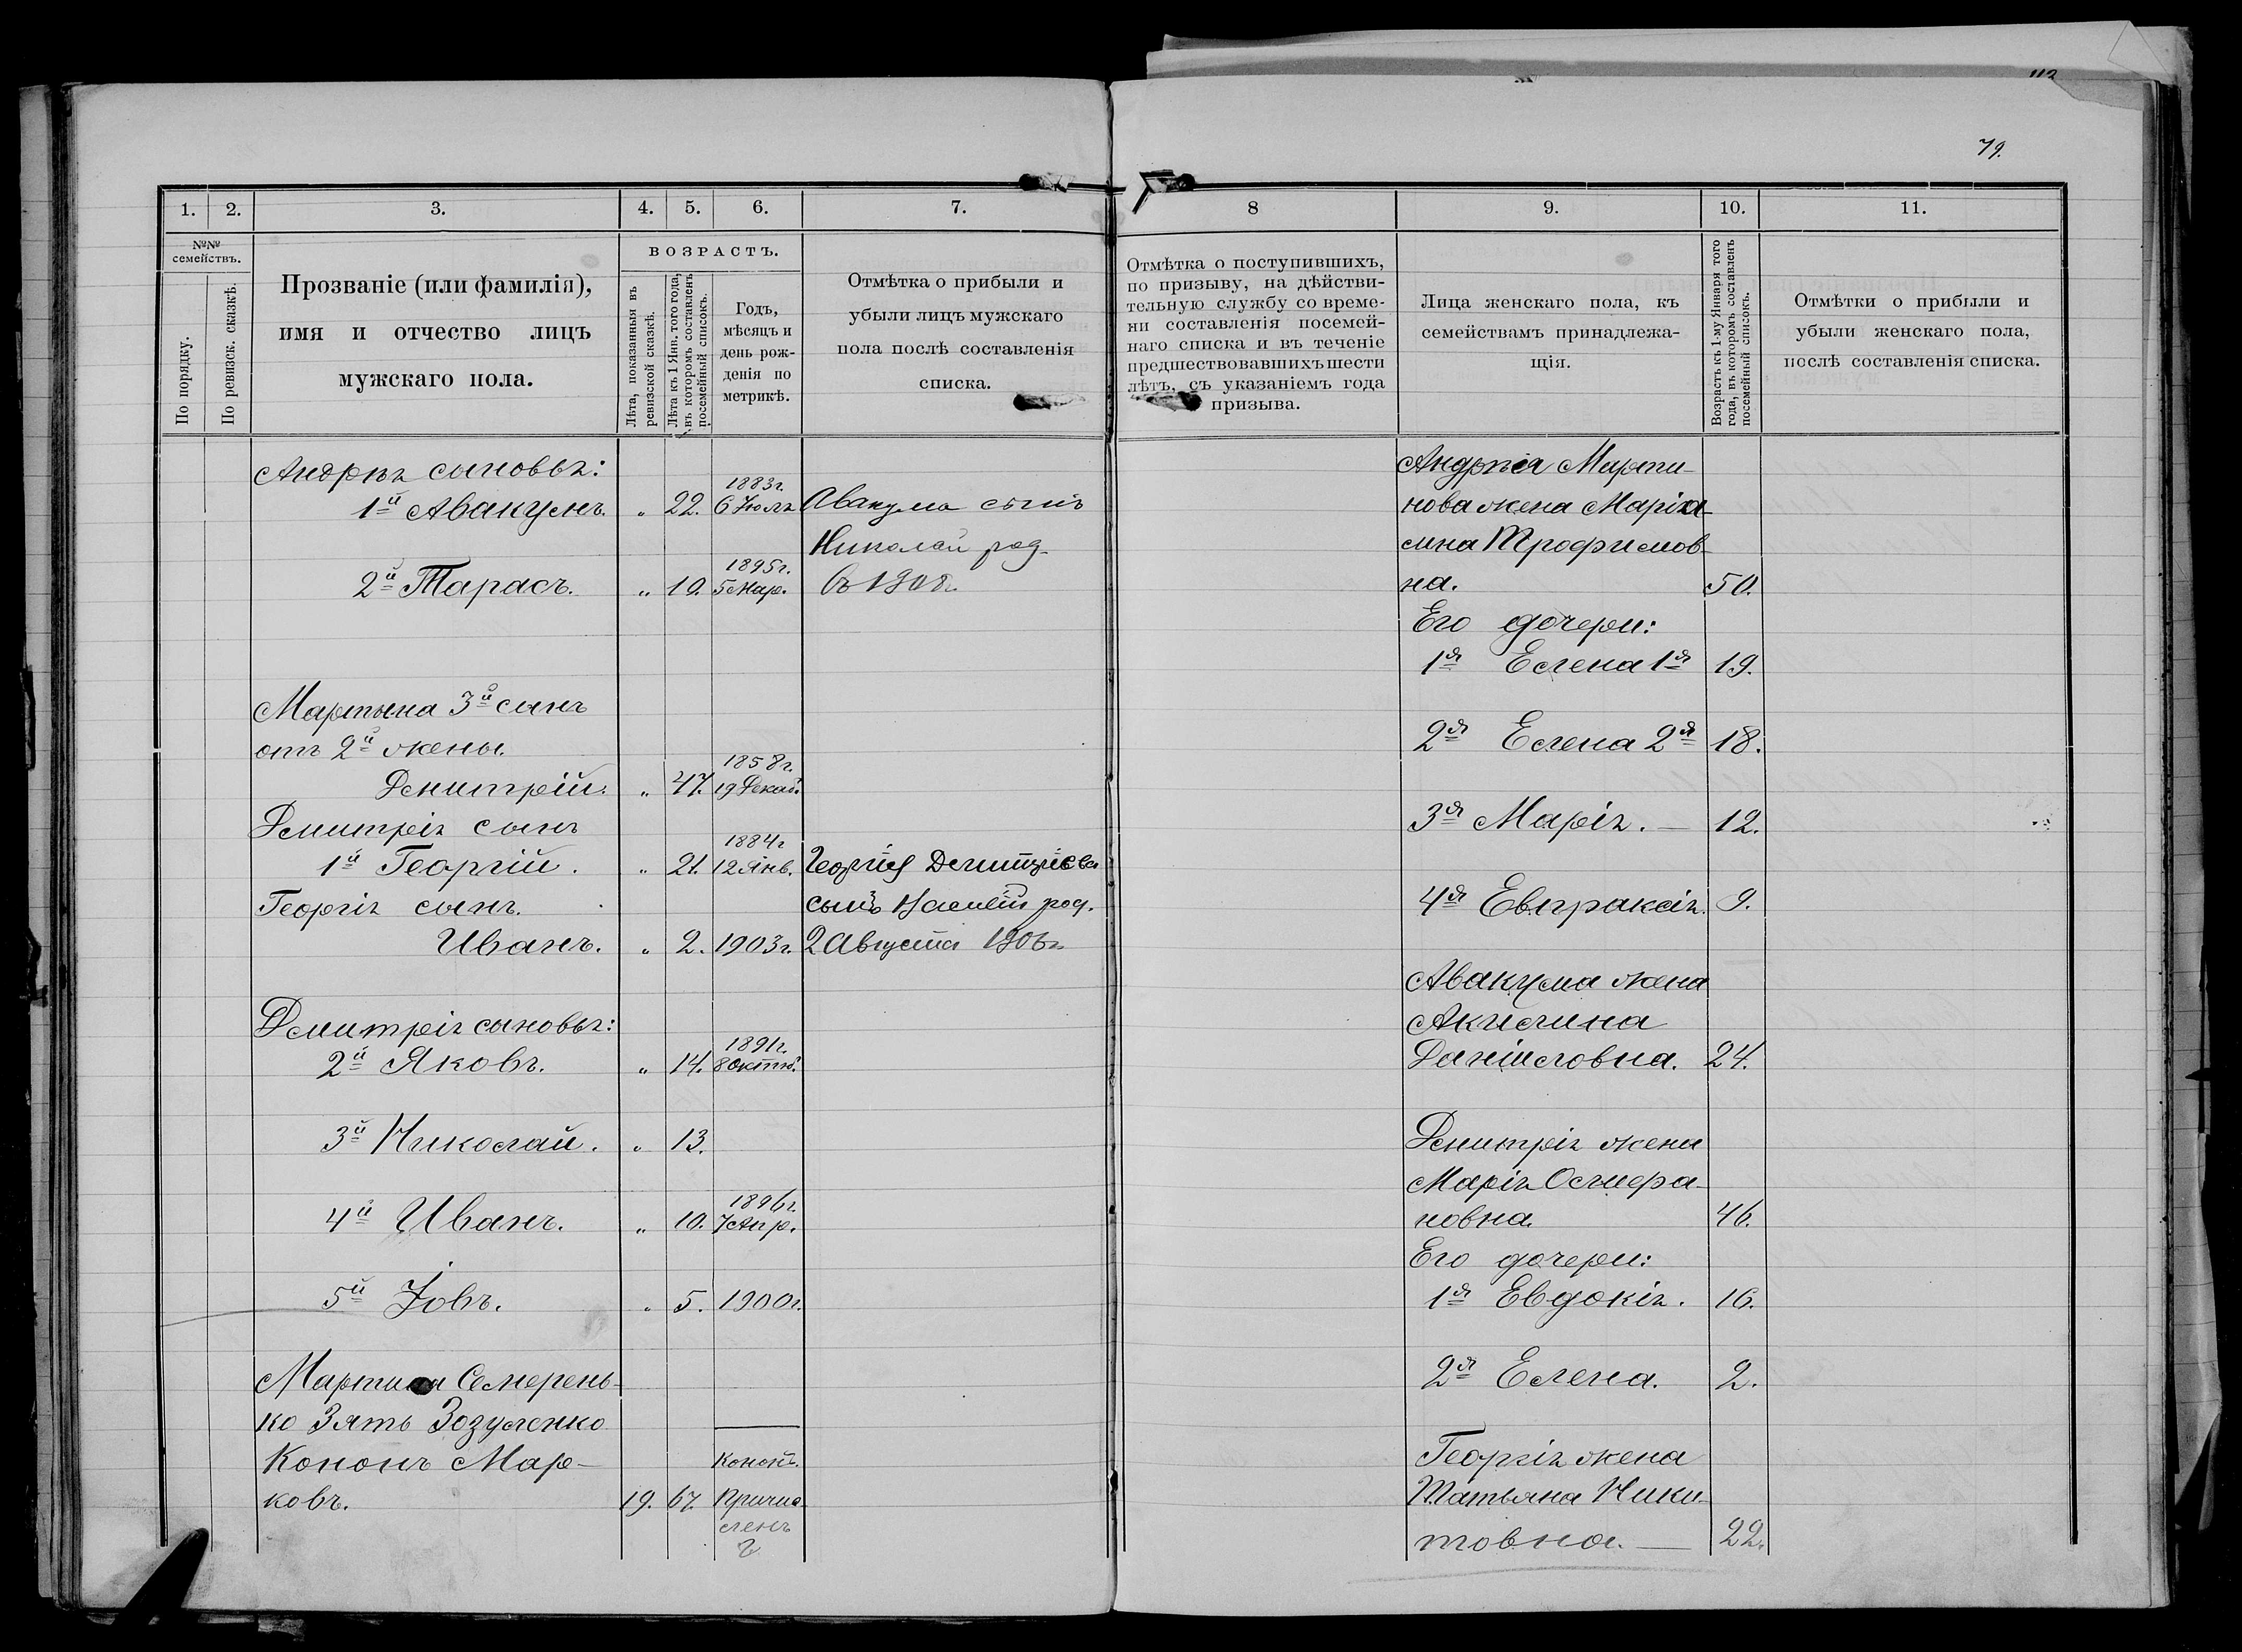 112
79.
1.
2.
3.
4.
5.
6.
7.
№№ семействъ.
По порядку.
По ревизск. сказкѣ.
Прозваніе (или фамилія),
имя и отчество лицъ
мужскаго пола.
ВОЗРАСТЪ.
Лѣта, показанныя въ
ревизской сказкѣ.
Лѣта къ 1 Янв. того года,
въ которомъ составленъ
посемейный списокъ.
Годъ,
мѣсяцъ и
день рож-
денія по
метрикѣ.
Отмѣтка о прибыли и
убыли лицъ мужскаго
пола послѣ составленія
списка.
Андрѣя сыновья:
1й Авакумъ. „ 22. 1883г. 6 Юля Авакума сынъ
Николай род.
2й Тарасъ. „ 10. 1895г. 5 Мар. въ 1908г.
Мартына 3й сынъ
отъ 2й жены.
Демитрій. „ 47. 1858г. 19 Декаб.
Демитрія сынъ
1й Георгій. „ 21. 1884г 12 Янв. Георгія Демитріева
Георгія сынъ. сынъ род.
Иванъ. „ 2. 1903г. 2 Августа 1906г.
Демитрія сыновья:
2й Яковъ. „ 14. 1891г. 8 Октяб.
3й Николай. „ 13.
4й Иванъ. „ 10. 1896г. 7 Апр.
5й Іовъ. „ 5. 1900г.
Мартина Семерень-
ко Зять Зозуленко
Кононъ Мар- Кононъ.
ковъ. 19. 67. Причис-
ленъ
8
9.
10.
11.
Отмѣтка о поступившихъ,
по призыву, на дѣйстви-
тельную службу со време-
ни составленія посемей-
наго списка и въ теченіе
предшествовавшихъ шести
лѣтъ, съ указаніемъ года
призыва.
Лица женскаго пола, къ
семействамъ принадлежа-
щія.
Возрастъ къ 1-му Января того
года, въ которомъ составленъ
посемейный списокъ.
Отмѣтки о прибыли и
убыли женскаго пола,
послѣ составленія списка.
Андрѣя Марти-
нова жена Маріа-
мна Трофимов-
на. 50.
Его дочери:
1я Елена 1я 19.
2я Елена 2я 18.
3я Марія. — 12.
4я Евпраксія. 9.
Авакума жена
Акилина
Даніиловна. 24.
Демитрія жена
Марія Олифера-
новна. 46.
Его дочери:
1я Евдокія. 16.
2я Елена. 2.
Георгія жена
Татьяна Ники-
товна. — 22.